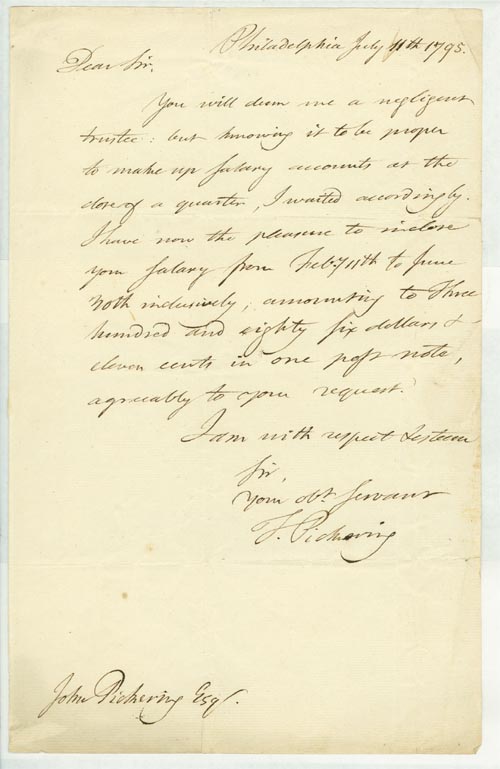 Philadelphia July 11th 1795.
Dear Sir.
You will deem me a negligent
trustee: but knowing it to be proper
to make up salary accounts at the
close of a quarter, I waited accordingly.
I have now the pleasure to inclose
your salary from Feby 11th to June
30th inclusively, amounting to Three
hundred and eighty six dollars &
eleven cents in one post note,
agreeably to your request.
I am with respect & esteem
Sir,
your obt. servant
T. Pickering
John Pickering Esqr.